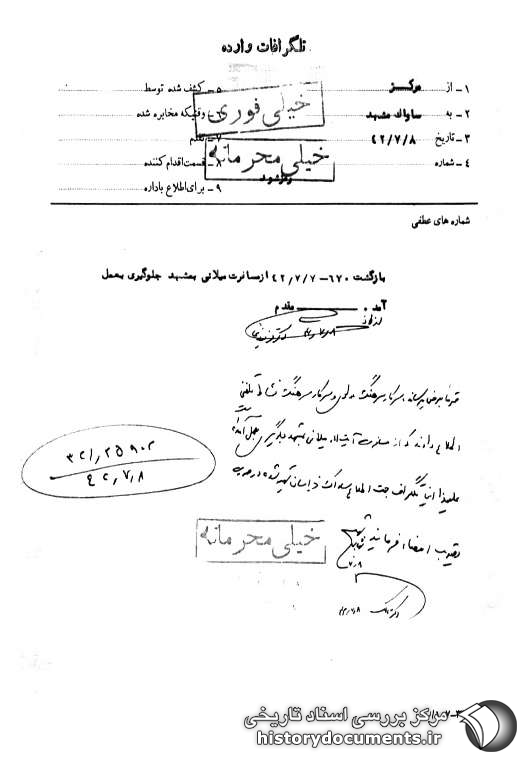 تلگرافات وارده
۱ـ از مرکز
۲ـ به ساواک مشهد
۳ـ تاریخ ۴۲/۷/۸
۴ـ شماره
۵ـ کشف شده توسط
۶ـ وقتیکه مخابره شده
۷ـ
۸ـ قسمت اقدام کننده
۹ـ برای اطلاع باداره
خیلی فوری
خیلی محرمانه
شماره های عطفی
بازگشت ۶۷۰ـ ۴۲/۷/۷ از مسافرت میلانی بمشهد جلوگیری بعمل
آمد. مقدم
سرکار سرهنگ و سرکار سرهنگ تلفنی
اطلاع دادند که از مسافرت میلانی بمشهد جلوگیری بعمل آمده
علیهذا تلگراف جهت اطلاع ساواک خراسان تهیه شده در صورت
تصویب امضاء فرمایند
۳۲۱/۲۵۹۰۲
۴۲/۷/۸
خیلی محرمانه
مرکز بررسی اسناد تاریخی
historydocuments.ir